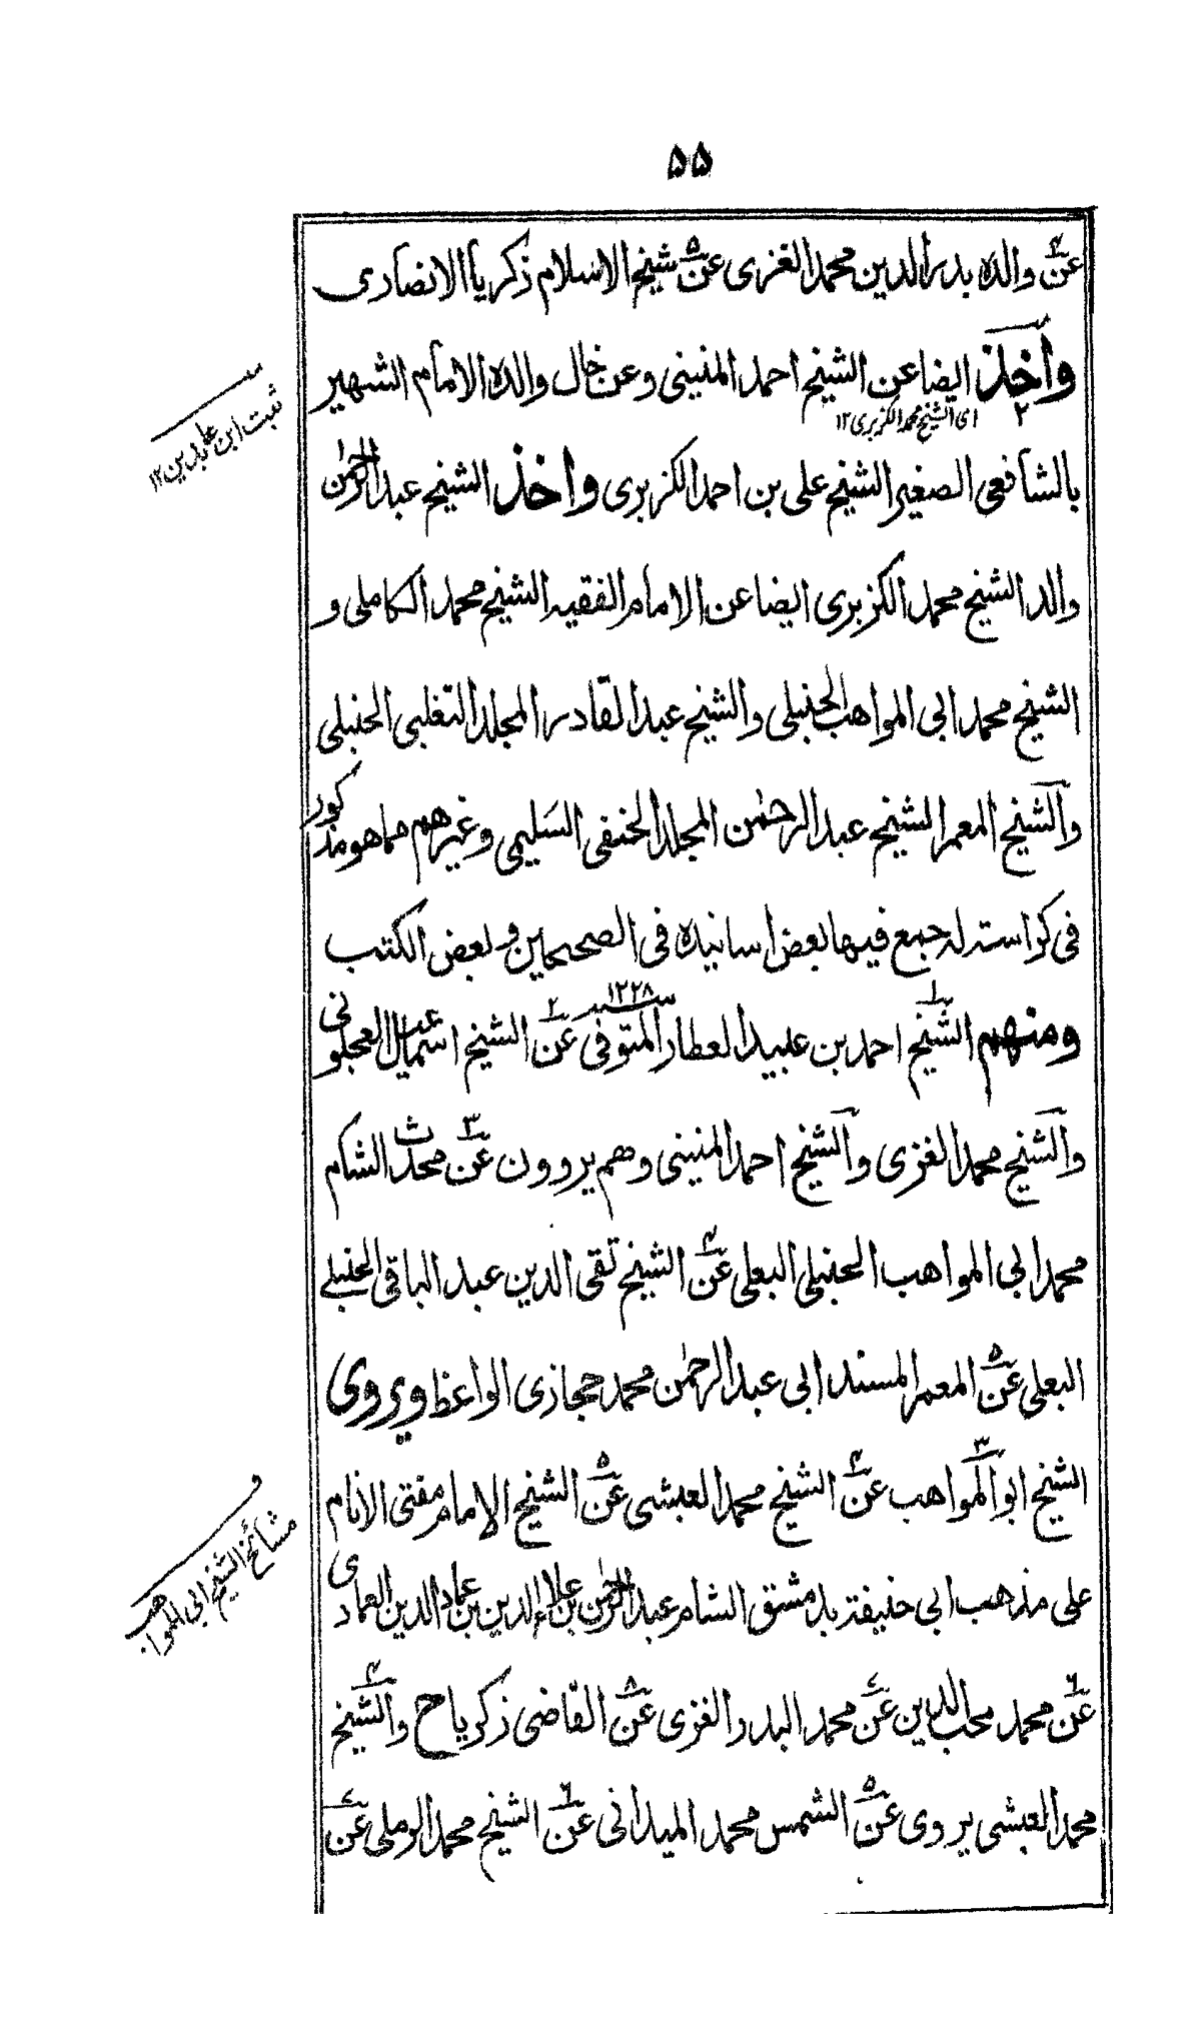 ۵۵
عن والده بدر الدین محمد الغزی عن شیخ الاسلام زکریا الانصاری
واخذ ایضا عن الشیخ احمد المنینی وعن خال والده الامام الشهیر
ای الشیخ محمد الکزبری ۱۲
بالشافعی الصغیر الشیخ علی بن احمد الکزبری واخذ الشیخ عبد الرحمٰن
والد الشیخ محمد الکزبری ایضا عن الامام الفقیه الشیخ محمد الکاملی و
الشیخ محمد ابی المواهب الحنبلی والشیخ عبد القادر المجلد التغلبی الحنبلی
والشیخ المعمر الشیخ عبد الرحمٰن المجلد الحنفی السَلیمی وغیرهم مما هو مذکور
فی کراسته له جمع فیها بعض اسانیده فی الصحیحین و بعض الکتب
ومنهم الشیخ احمد بن عبید العطار المتوفی ۱۲۲۸ عن الشیخ اسمعیل العجلونی
والشیخ محمد الغزی والشیخ احمد المنینی وهم یروون عن محدث الشام
محمد ابی المواهب الحنبلی البعلی عن الشیخ تقی الدین عبد الباقی الحنبلے
البعلی عن المعمر المسند ابی عبد الرحمٰن محمد حجازی الواعظ ویروی
الشیخ ابو المواهب عن الشیخ محمد العبشی عن الشیخ الامام مفتی الانام
علی مذهب ابی حنیفة بدمشق الشام عبد الرحمٰن بن علاء الدین بن عماد الدین العمادی
عن محمد محب الدین عن محمد البدر الغزی عن القاضی زکریا ح والشیخ
محمد العبشی یروی عن الشمس محمد المیدانی عن الشیخ محمد الرملی عن
ثبت ابن عابدین ۱۲
مشائخ الشیخ ابی المواهب